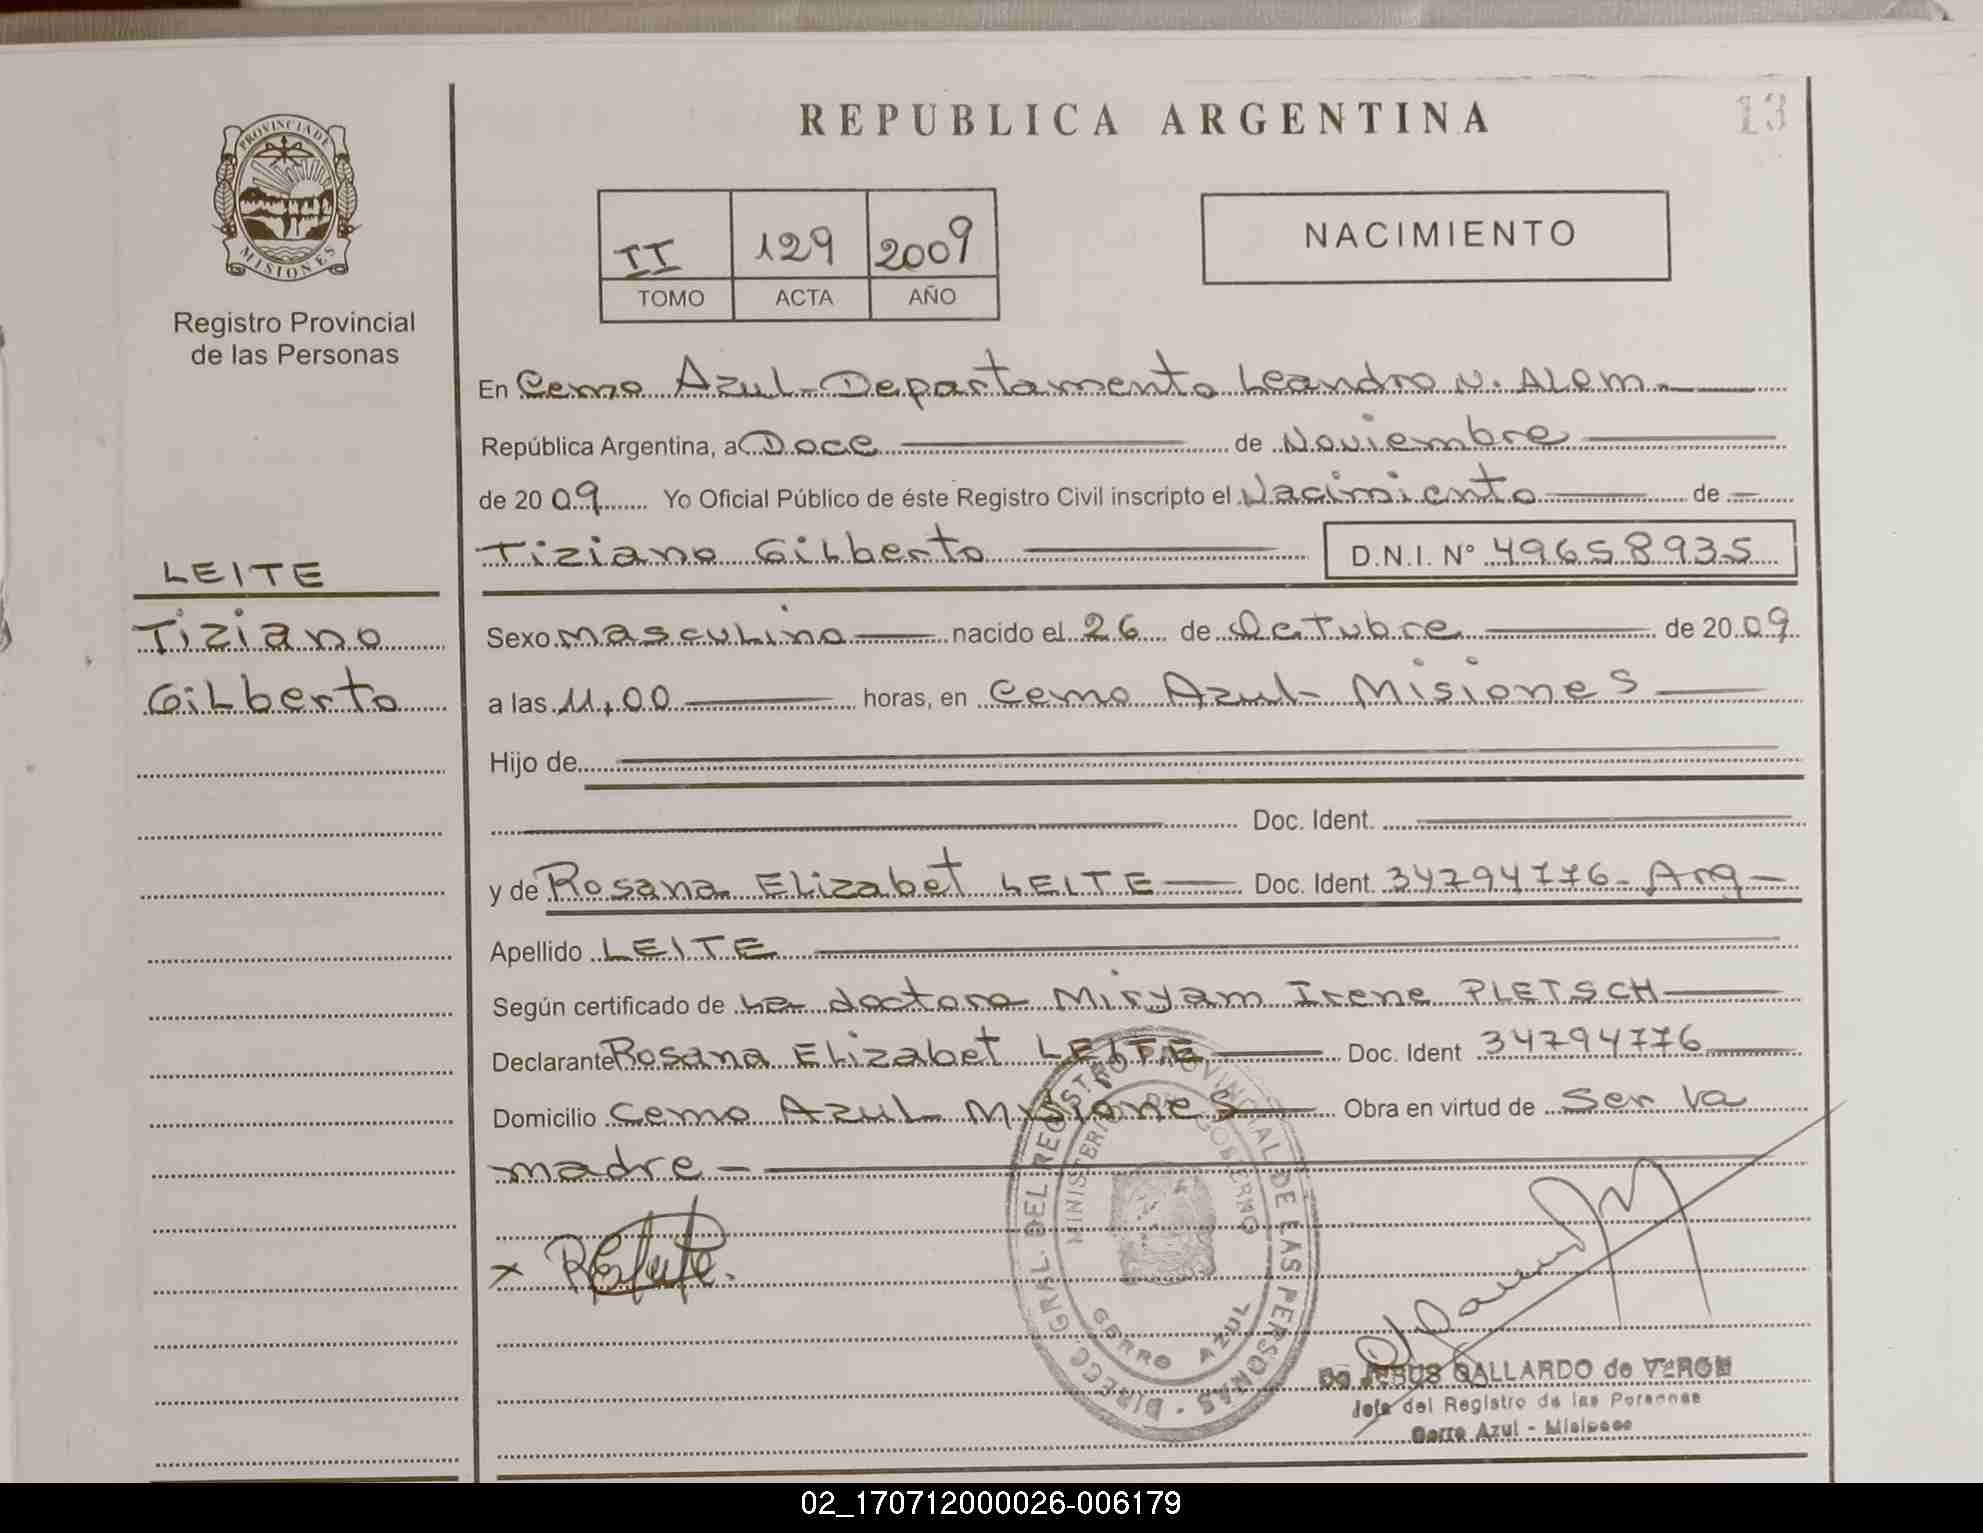 REPUBLICA ARGENTINA
13
PROVINCIA DE
MISIONES
Registro Provincial
de las Personas
II 129 2009
TOMO ACTA AÑO
NACIMIENTO
En Cerro Azul - Departamento Leandro N. Alem.
República Argentina, a Doce de Noviembre
de 2009 Yo Oficial Público de éste Registro Civil inscripto el Nacimiento de
Tiziano Gilberto D.N.I. Nº 49658935
LEITE
Tiziano
Gilberto
Sexo masculino nacido el 26 de Octubre de 2009
a las 11,00 horas, en Cerro Azul - Misiones
Hijo de
Doc. Ident.
y de Rosana Elizabet LEITE Doc. Ident. 34794776 - Arg -
Apellido LEITE
Según certificado de La doctora Miryam Irene PLETSCH
Declarante Rosana Elizabet LEITE Doc. Ident 34794776
Domicilio Cerro Azul - Misiones Obra en virtud de Ser la
madre -
DIRECC GRAL DEL REGISTRO PROVINCIAL DE LAS PERSONAS -
MINISTERIO DE GOBIERNO
CERRO AZUL
JESUS GALLARDO de VERON
Jefe del Registro de las Personas
Cerro Azul - Misiones
02_170712000026-006179